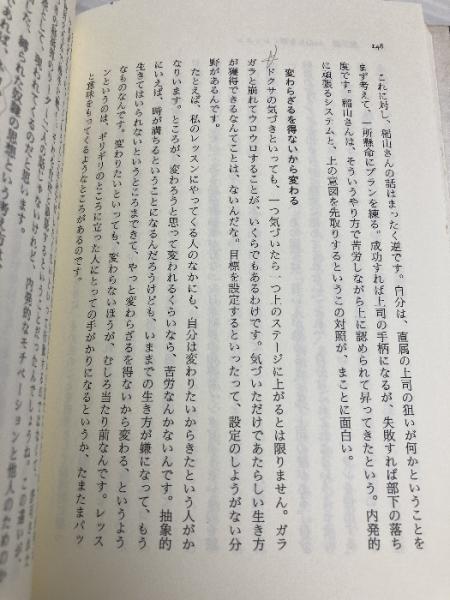 248
これに対し、稲山さんの話はまったく逆です。自分は、直属の上司の狙いが何かということを
まず考えて、一所懸命にプランを練る。成功すれば上司の手柄になるが、失敗すれば部下の落ち
度です。稲山さんは、そういうやり方で苦労しながら上に認められて昇ってきたという。内発的
に頑張るシステムと、上の意図を先取りするというこの対照が、まことに面白い。
変わらざるを得ないから変わる
ドクサの気づきといっても、一つ気づいたら一つ上のステージに上がるとは限りません。ガラ
ガラと崩れてウロウロすることが、いくらでもあるわけです。気づいただけであたらしい生き方
が獲得できるなんてことは、ないんだな。目標を設定するといったって、設定のしようがない分
野があるんです。
たとえば、私のレッスンにやってくる人のなかにも、自分は変わりたいからきたという人がか
なりいます。ところが、変わろうと思って変われるくらいなら、苦労なんかないんです。抽象的
にいえば、時が満ちるということになるんだろうけども、いままでの生き方が嫌になって、もう
生きてはいられないというところまできて、やっと変わらざるを得ないから変わる、というよう
なものなんです。変わりたいといっても、変わらないほうが、むしろ当たり前なんです。レッス
ンというのは、ギリギリのところに立った人にとっての手がかりになるというか、たまたまパッ
と意味をもってくるようなところがあるのです。
内発的なモチベーションと他人のための